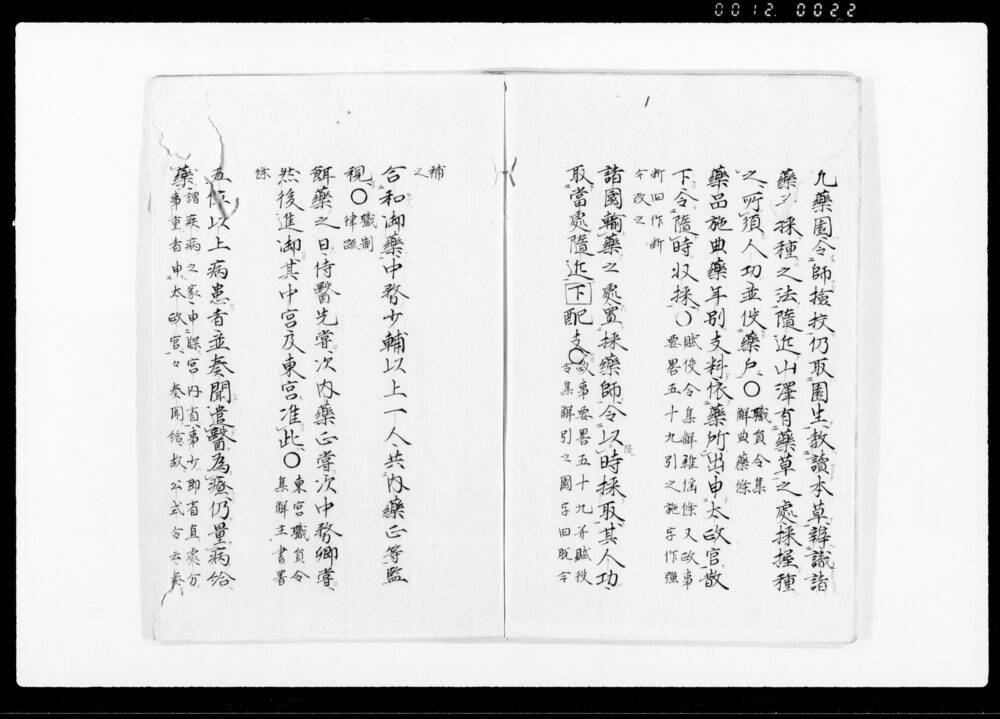 0012 0022
凡藥園令師撿挍仍取園生教讀本草辨識諸
藥并採種之法隨近山澤有藥草之處採握種
之所須人功並役藥戶〇職員令集
解典藥條
藥品施典藥年別支料依藥所出申太政官散
下令隨時収採〇賦役令集解雜徭條又政事
要畧五十九引之施字作強
新旧作新
今改之
諸國輸藥之處置採藥師令以時採取其人功
取當處隨近下配支〇政事要畧五十九并賦役
令集解引之國字旧脱今
補
之
合和御藥中務少輔以上一人共内藥正等監
視〇職制
律疏
餌藥之日侍醫先甞次内藥正甞次中務卿甞
然後進御其中宮及東宮准此〇東宮職員令
集解主書署
條
五位以上病患者並奏聞遣醫為療仍量病給
藥謂疾病之家申牒宮内省事少即省直處分
事重者申太政官々奏聞給故公式令云奏